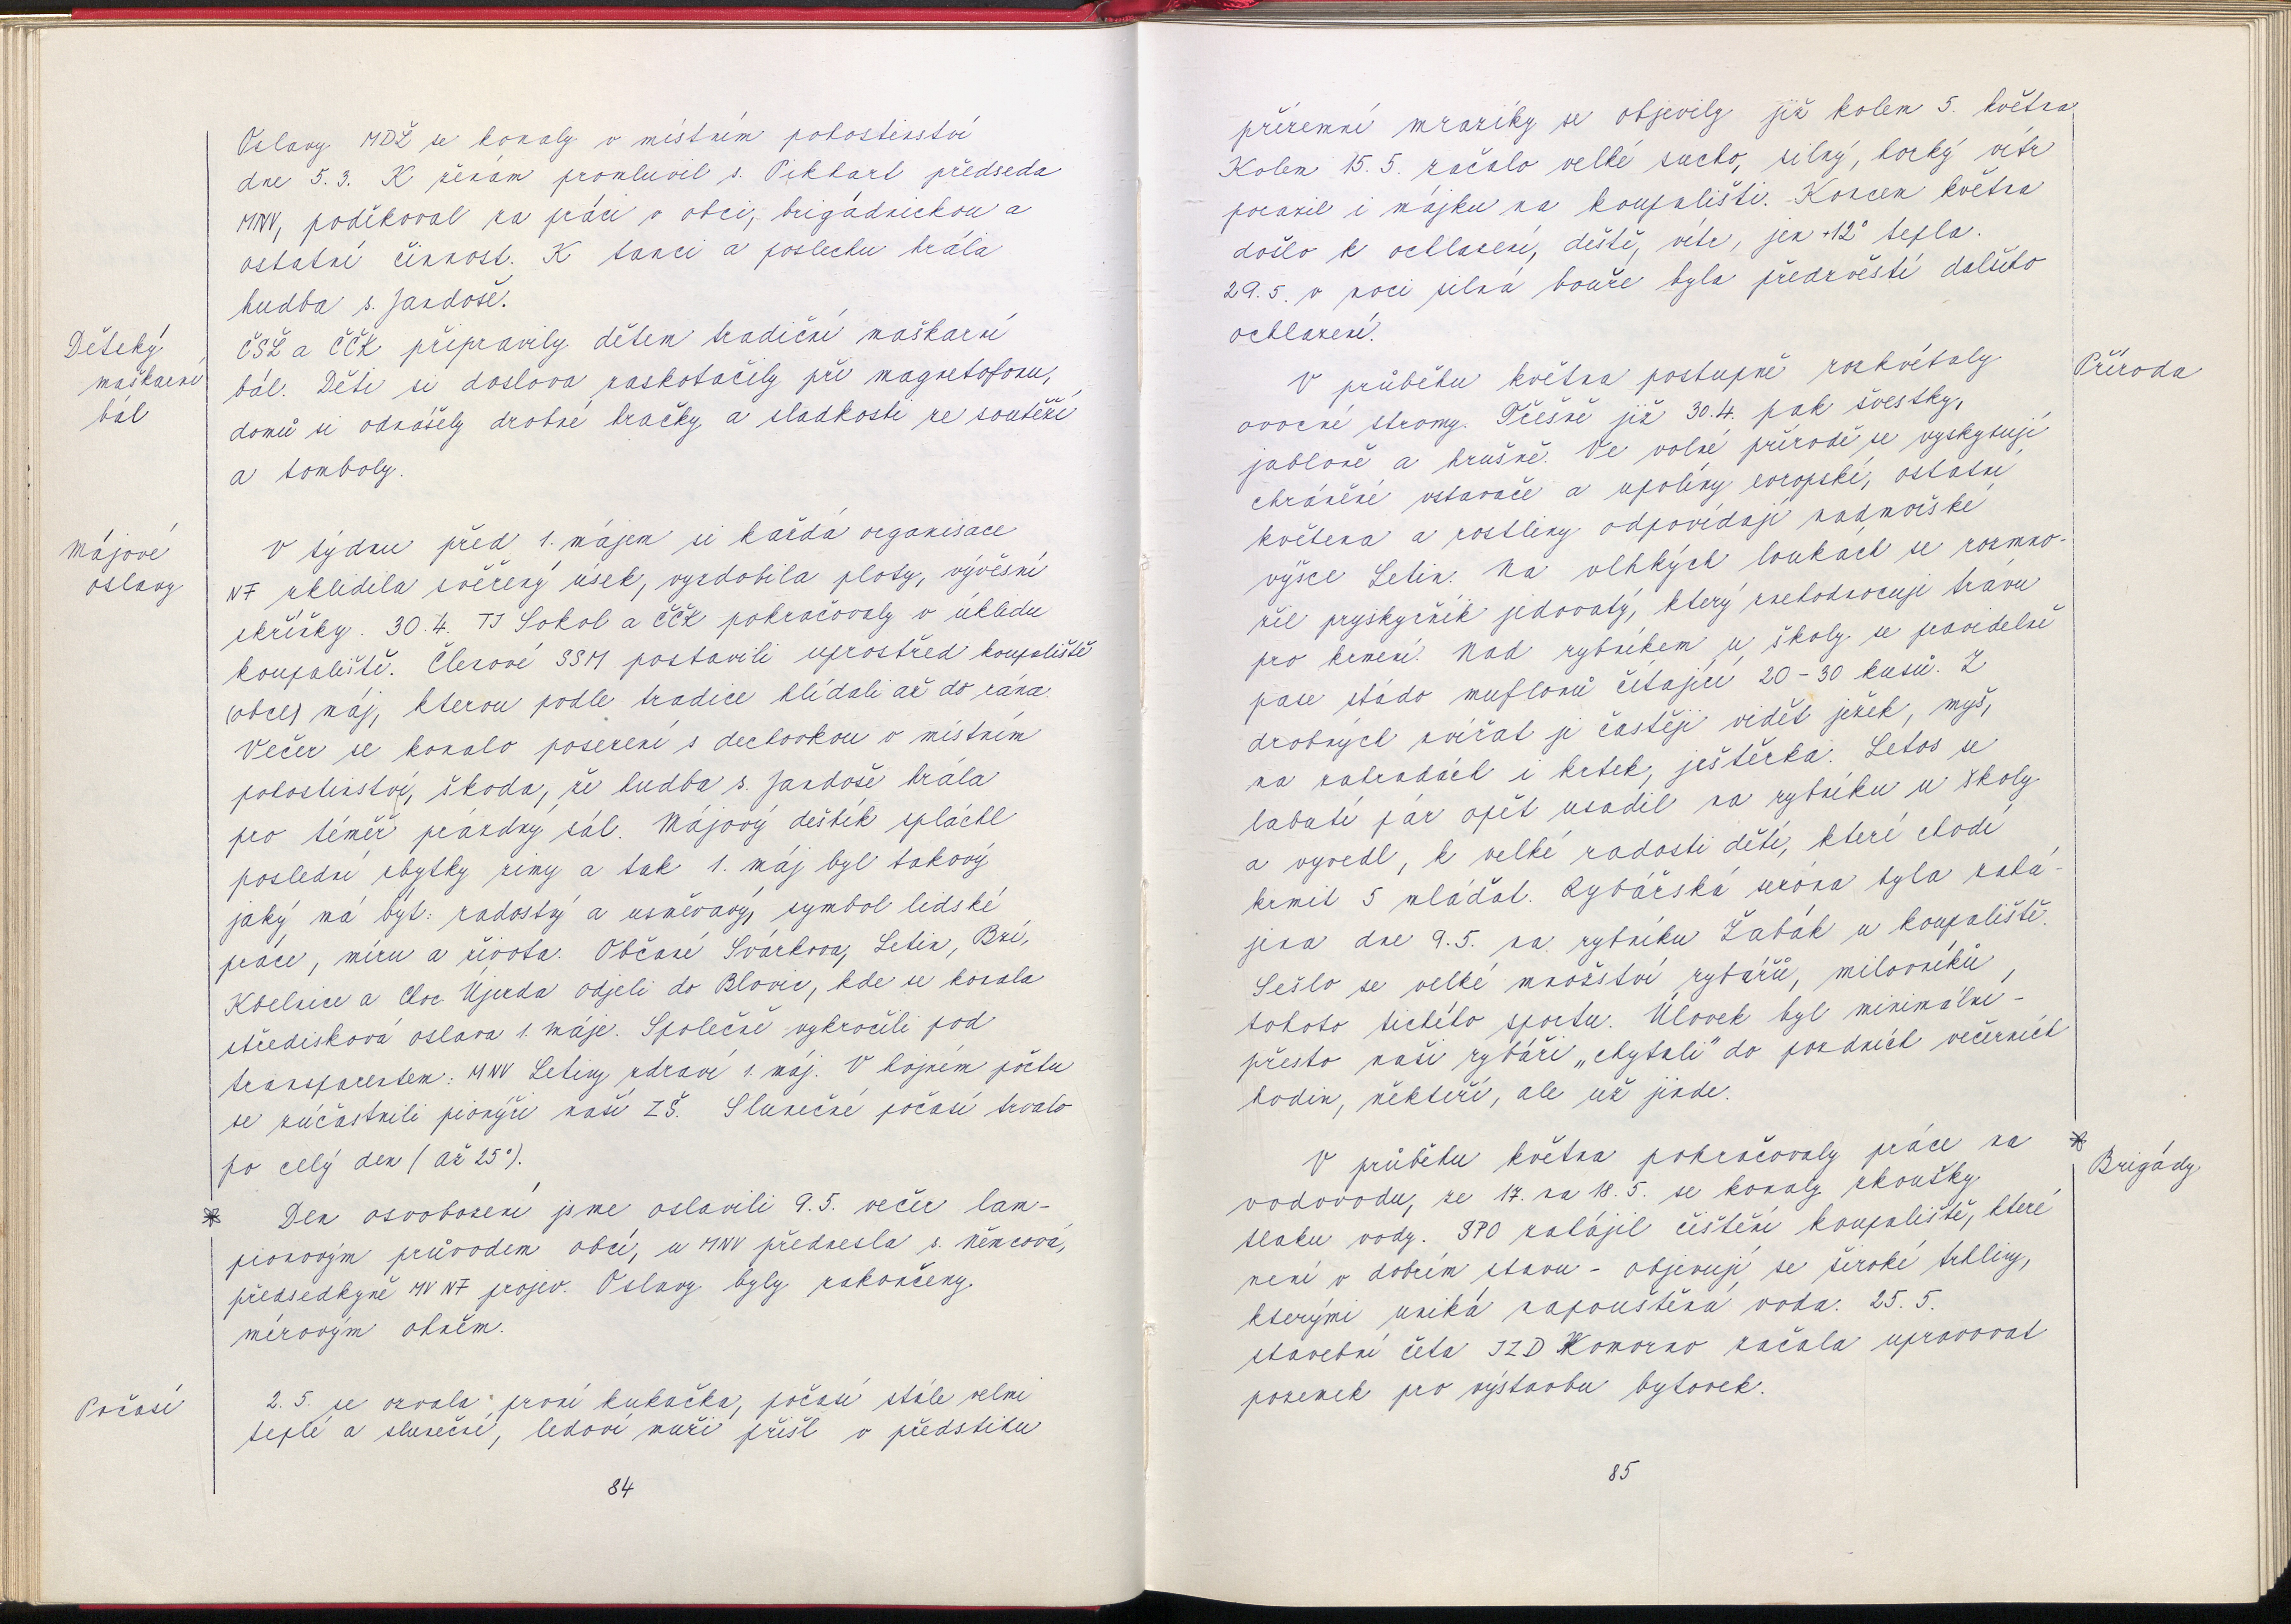 Oslavy MDŽ se konaly v místním pohostinství
dne 5. 3. K ženám promluvil s. Pikhart předseda
MNV, poděkoval za práci v obci, brigádnickou a
ostatní činnost. K tanci a poslechu hrála
hudba s. Jandoše.
Dětský
maškarní
bál
ČSŽ a ČČK připravily dětem tradiční maškarní
bál. Děti se doslova zaskotačily při magnetofonu,
domů si odnášely drobné hračky a sladkosti ze soutěží
a tomboly.
Májové
oslavy
V týdnu před 1. májem si každá organisace
NF uklidila svěřený úsek, vyzdobila ploty, vývěsní
skříňky. 30. 4. TJ Sokol a ČČK pokračovaly v úklidu
koupaliště. Členové SSM postavili uprostřed koupaliště
(obce) máj, kterou podle tradice hlídali až do rána.
Večer se konalo posezení s dechovkou v místním
pohostinství, škoda, že hudba s. Jandoše hrála
pro téměř prázdný sál. Májový deštík spláchl
poslední zbytky zimy a tak 1. máj byl takový
jaký má být: radostný a usměvavý, symbol lidské
práce, míru a života. Občané Svárkova, Letin, Bzí,
Kbelnice a Choc. Újezda odjeli do Blovic, kde se konala
středisková oslava 1. máje. Společně vykročili pod
transparentem: MNV Letiny zdraví 1. máj. V hojném počtu
se zúčastnili pionýři naší ZŠ. Slunečné počasí trvalo
po celý den (až 25°).
* Den osvobození jsme oslavili 9. 5. večer lam-
pionovým průvodem obcí, u MNV přednesla s. Němcová,
předsedkyně MV NF projev. Oslavy byly zakončeny
mírovým ohněm.
Počasí
2. 5. se ozvala první kukačka, počasí stále velmi
teplé a slunečné, ledoví muži přišli v předstihu
84
přízemní mrazíky se objevily již kolem 5. května
Kolem 15. 5. začalo velké sucho, silný, horký vítr
porazil i májku na koupališti. Koncem května
došlo k ochlazení, deště, vítr, jen +12° tepla.
29. 5. v noci silná bouře byla předzvěstí dalšího
ochlazení.
Příroda
V průběhu května postupně rozkvétaly
ovocné stromy. Třešně již 30. 4. pak švestky,
jabloně a hrušně. Ve volné přírodě se vyskytují
chráněné vstavače a upolíny evropské, ostatní
květena a rostliny odpovídají nadmořské
výšce Letin. Na vlhkých loukách se rozmno-
žil pryskyřník jedovatý, který znehodnocuje trávu
pro krmení. Nad rybníkem u školy se pravidelně
pase stádo muflonů čítající 20 - 30 kusů. Z
drobných zvířat je častěji vidět ježek, myš,
na zahradách i krtek, ještěrka. Letos se
labutí pár opět usadil na rybníku u školy
a vyvedl, k velké radosti dětí, které chodí
krmit 5 mláďat. Rybářská sezóna byla zahá-
jena dne 9. 5. na rybníku Žabák u koupaliště.
Sešlo se velké množství rybářů, milovníků
tohoto tichého sportu. Úlovek byl minimální -
přesto naši rybáři „chytali" do pozdních večerních
hodin, někteří, ale už jinde.
* Brigády
V průběhu května pokračovaly práce na
vodovodu, ze 17. na 18. 5. se konaly zkoušky
tlaku vody. SPO zahájil čištění koupaliště, které
není v dobrém stavu - objevují se široké trhliny,
kterými uniká napouštěná voda. 25. 5.
stavební četa JZD Komorno začala upravovat
pozemek pro výstavbu bytovek.
85